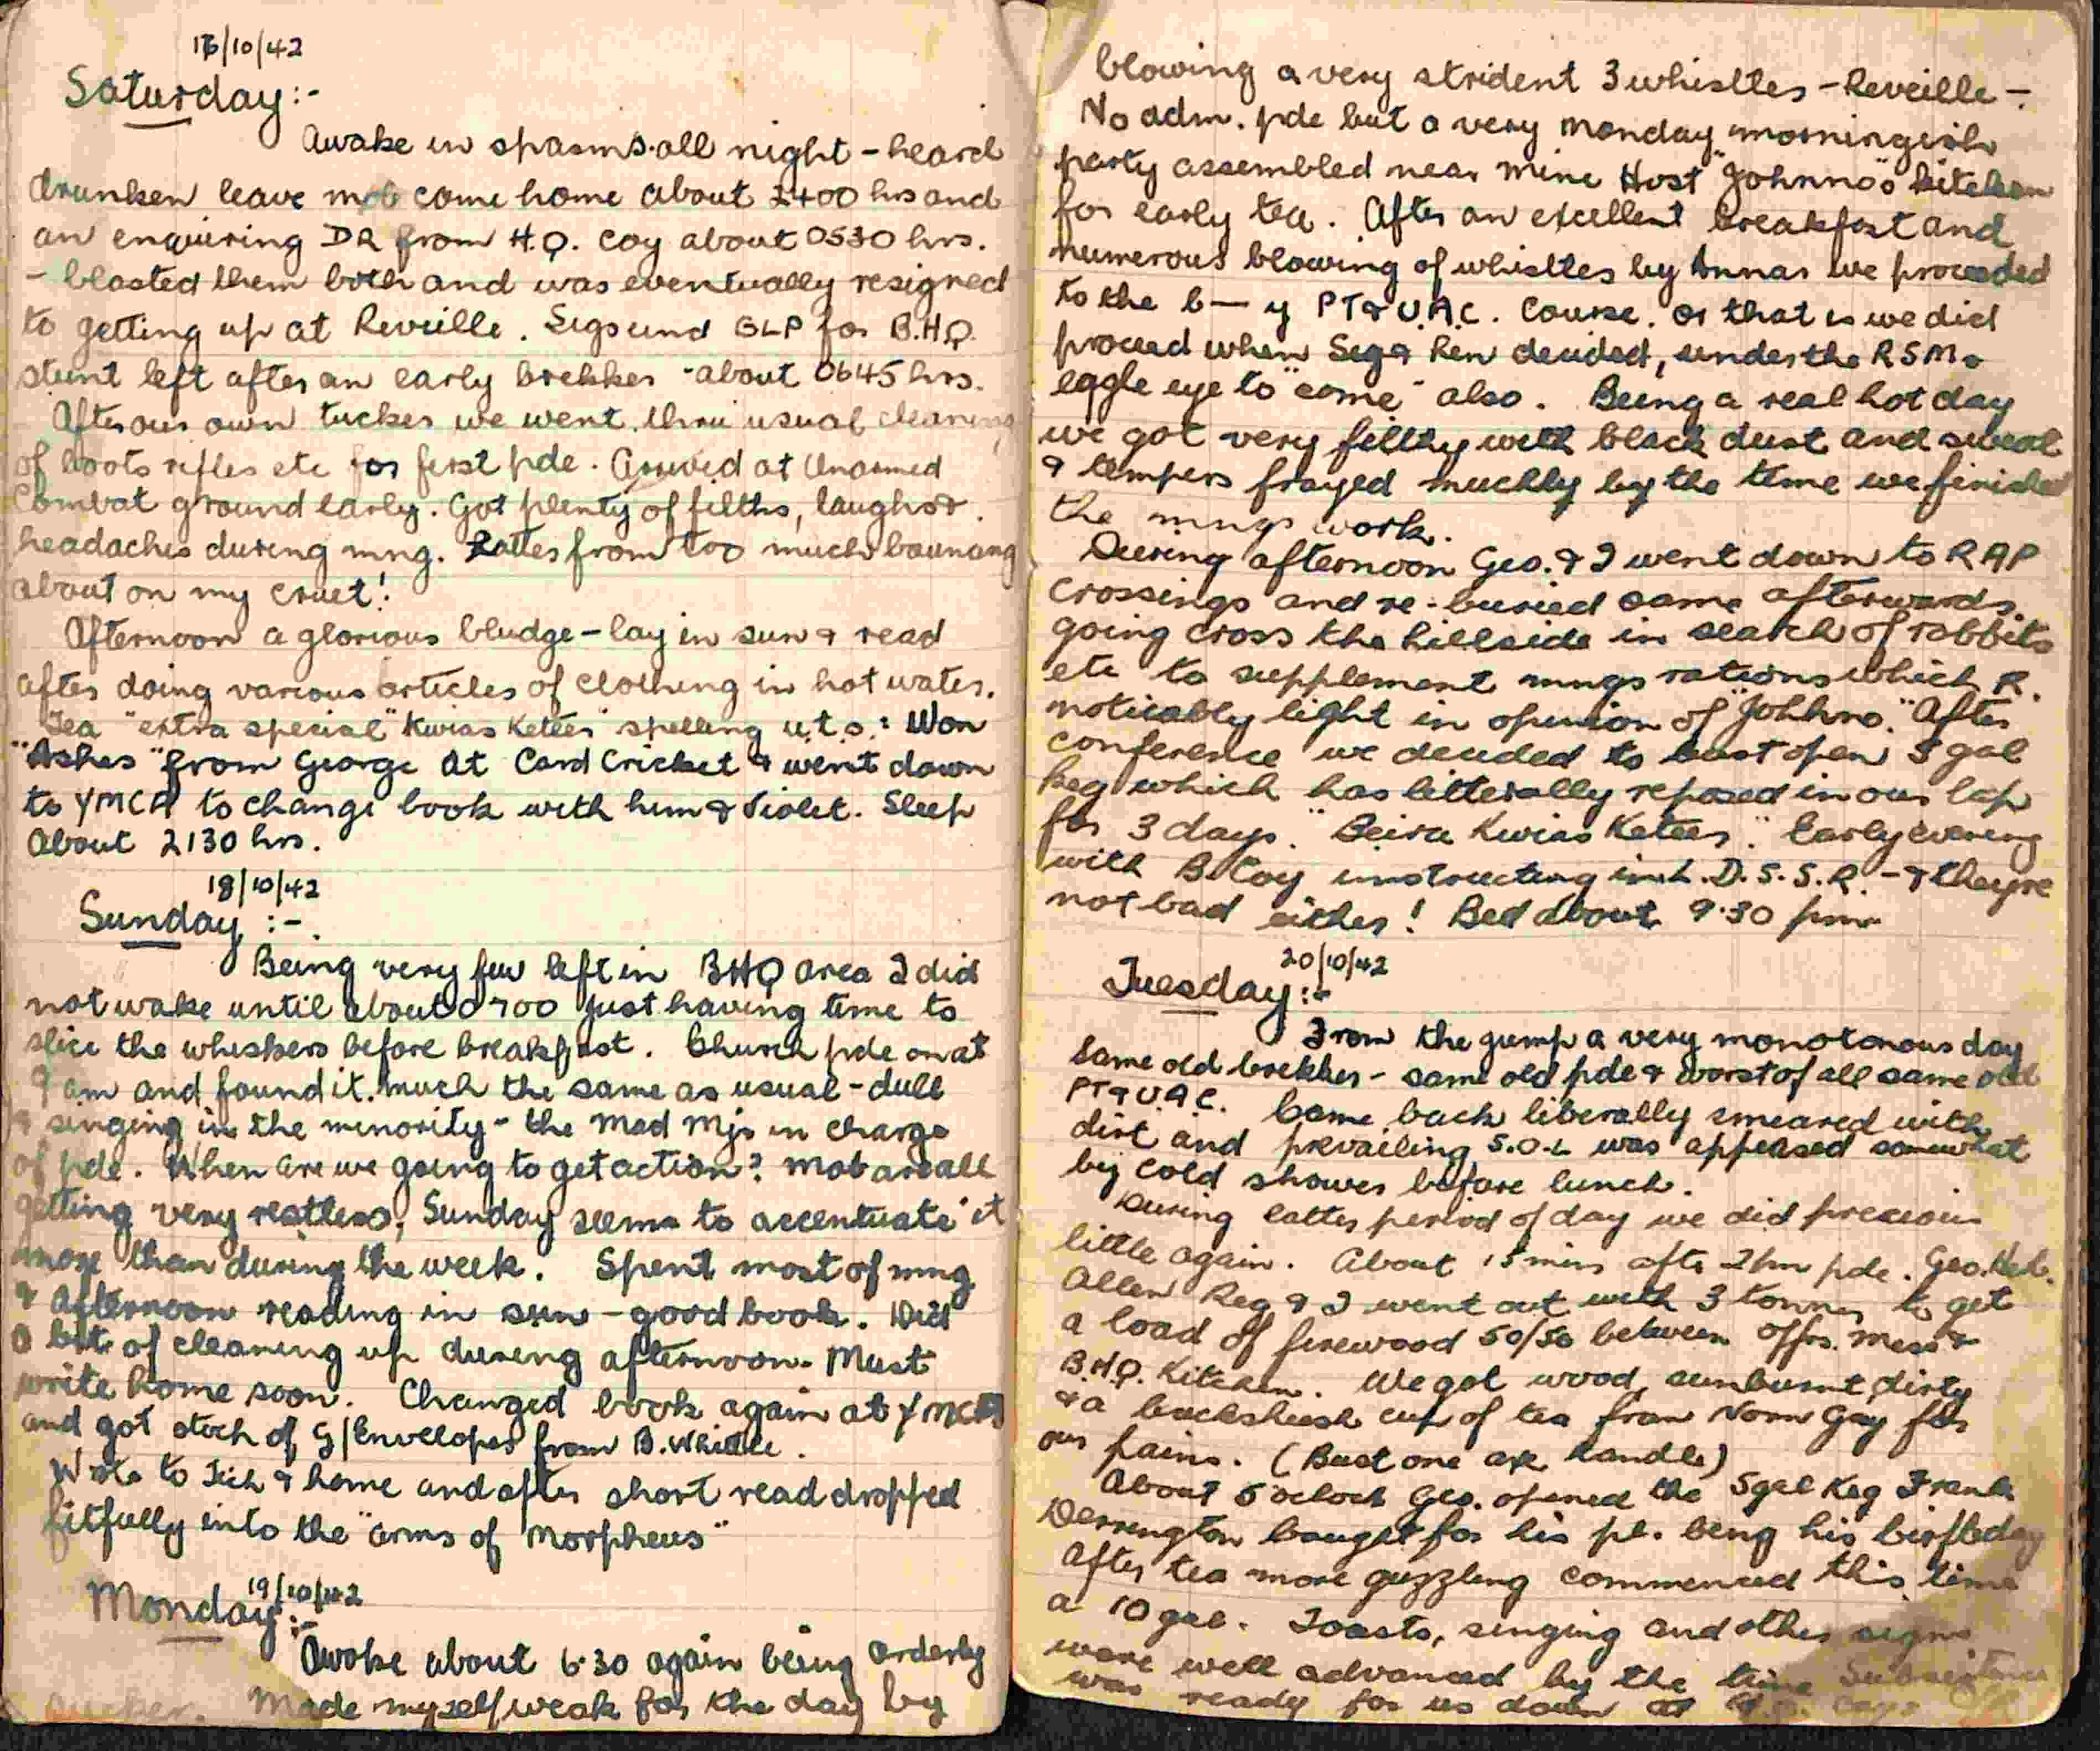 17/10/42
Saturday:-
Awake in spasms all night - heard
drunken leave mob come home about 2400 hrs and
an enquiring DR from H.Q. Coy about 0530 hrs.
- blasted them both and was eventually resigned
to getting up at Reveille. Sigs and GLP for B.H.Q.
stunt left after an early brekker - about 0645 hrs.
After our own tucker we went thru usual cleaning
of boots rifles etc for first pde. Arrived at Unarmed
Combat ground early. Got plenty of filths, laughs &
headaches during mng. Latter from too much bouncing
about on my cruet!
Afternoon a glorious bludge - lay in sun & read
after doing various articles of clothing in hot water.
Tea "extra special" "Kwias Keteer" spelling u.t.s.: Won
"Ashes" from George at Card Cricket & went down
to YMCA to change book with him & Violet. Sleep
about 2130 hrs.
18/10/42
Sunday:-
Being very few left in BHQ area I did
not wake until about 0700 just having time to
slice the whiskers before breakfast. Church pde on at
9 am and found it much the same as usual - dull
& singing in the minority - the Mad Mjr in charge
of pde. When are we going to get action? Mob are all
getting very restless; Sunday seems to accentuate it
more than during the week. Spent most of mng
& Afternoon reading in sun - good book. Did
a bit of cleaning up during afternoon. Must
write home soon. Changed book again at YMCA
and got stock of G/Envelopes from B. Whittle.
Wrote to & home and after short read dropped
fitfully into the "arms of Morpheus"
19/10/42
Monday:-
Awoke about 6.30 again being orderly
Made myself weak for the day by
blowing a very strident 3 whisltes - Reveille -.
No adm. pde but a very monday morningish
party assembled near mine Host "Johnno's" kitchen
for early tea. After an excellent breakfast and
numerous blowing of whisltes by Annas we proceeded
to the b—y PT & U.A.C. Course. or that is we did
proceed when Sigs & Ren decided, under the RSMs
eagle eye to "come" also. Being a real hot day
we got very filthy with black dust and sweat
& tempers frayed muchly by the time we finished
the mngs work.
During afternoon Geo. & I went down to RAP
crossings and re-buried same afterwards
going cross the hillside in search of rabbits
etc to supplement mngs rations which R.
noticably light in opinion of "Johhno." After
conference we decided to bust open 5 gal
keg which has litterally reposed in our lap
for 3 days. "Beira Kwias Keteer". Early evening
with B. Coy instructing in L.D.S.S.R. - & theyre
not bad either! Bed about 9.30 pm
20/10/42
Tuesday:-
From the jump a very monotonous day
same old brekker - same old pde & worst of all same old
PT & U.A.C. Came back liberally smeared with
dirt and prevailing S.O.L was appeased somewhat
by cold shower before lunch.
During latter period of day we did precious
little again. About 15 mins after 2pm pde. Geo.
Allen Reg & I went out with 3 tonner to get
a load of firewood 50/50 between offrs. mess &
B.H.Q. Kitchen. We got wood, sunburnt, dirty
& a buckshush cup of tea from Norm Gay for
our pains. (Bust one axe handle)
About 5 oclock Geo. opened the 5gal Keg Frank
Derrington bought for his pl. being his birthday
After tea more guzzling commenced this time
a 10 gal. Toasts, singing and other signs
were well advanced by the time
was ready for us down at